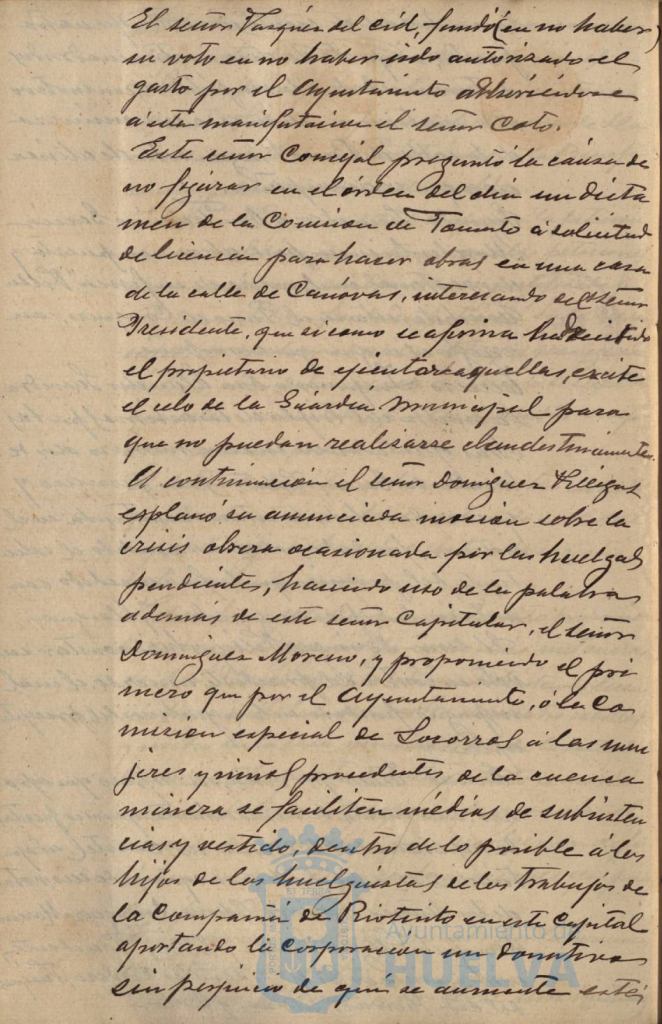 El señor Vasquez del cid, fundó (en no haber)
su voto en no haber sido autorizado el
gasto por el Ayuntamiento adhiriéndose
á esta manifestacion el señor Coto.
Este señor Consejal preguntó la causa de
no figurar en el órden del dia un dicta
men de la Comision de Fomento á solicitud
de licencia para hacer obras en una casa
de la calle de Canovas, interesando del señor
Presidente, que si como se afirma ha
el propietario de ejecutar aquellas, excite
el celo de la Guardia Municipal para
que no puedan realizarse clandestinamente.
A continuacion el señor Dominguez Villegas
esplanó su anunciada mocion sobre la
crisis obrera ocasionada por las huelgas
pendientes, haciendo uso de la palabra
además de este señor Capitular, el señor
Dominguez Moreno, y proponiendo el pri
mero que por el Ayuntamiento, ó la Co
mision especial de Socorros á las mu
jeres y niños procedentes de la cuenca
minera se faciliten médios de subsisten
cias y vestido, dentro de lo posible á los
hijos de los huelguistas de los trabajos de
la Compañia de Riotinto en este Capital
aportando la corporacion un donativo
sin perjuicio de que se aumente este
Ayuntamiento de
HUELVA